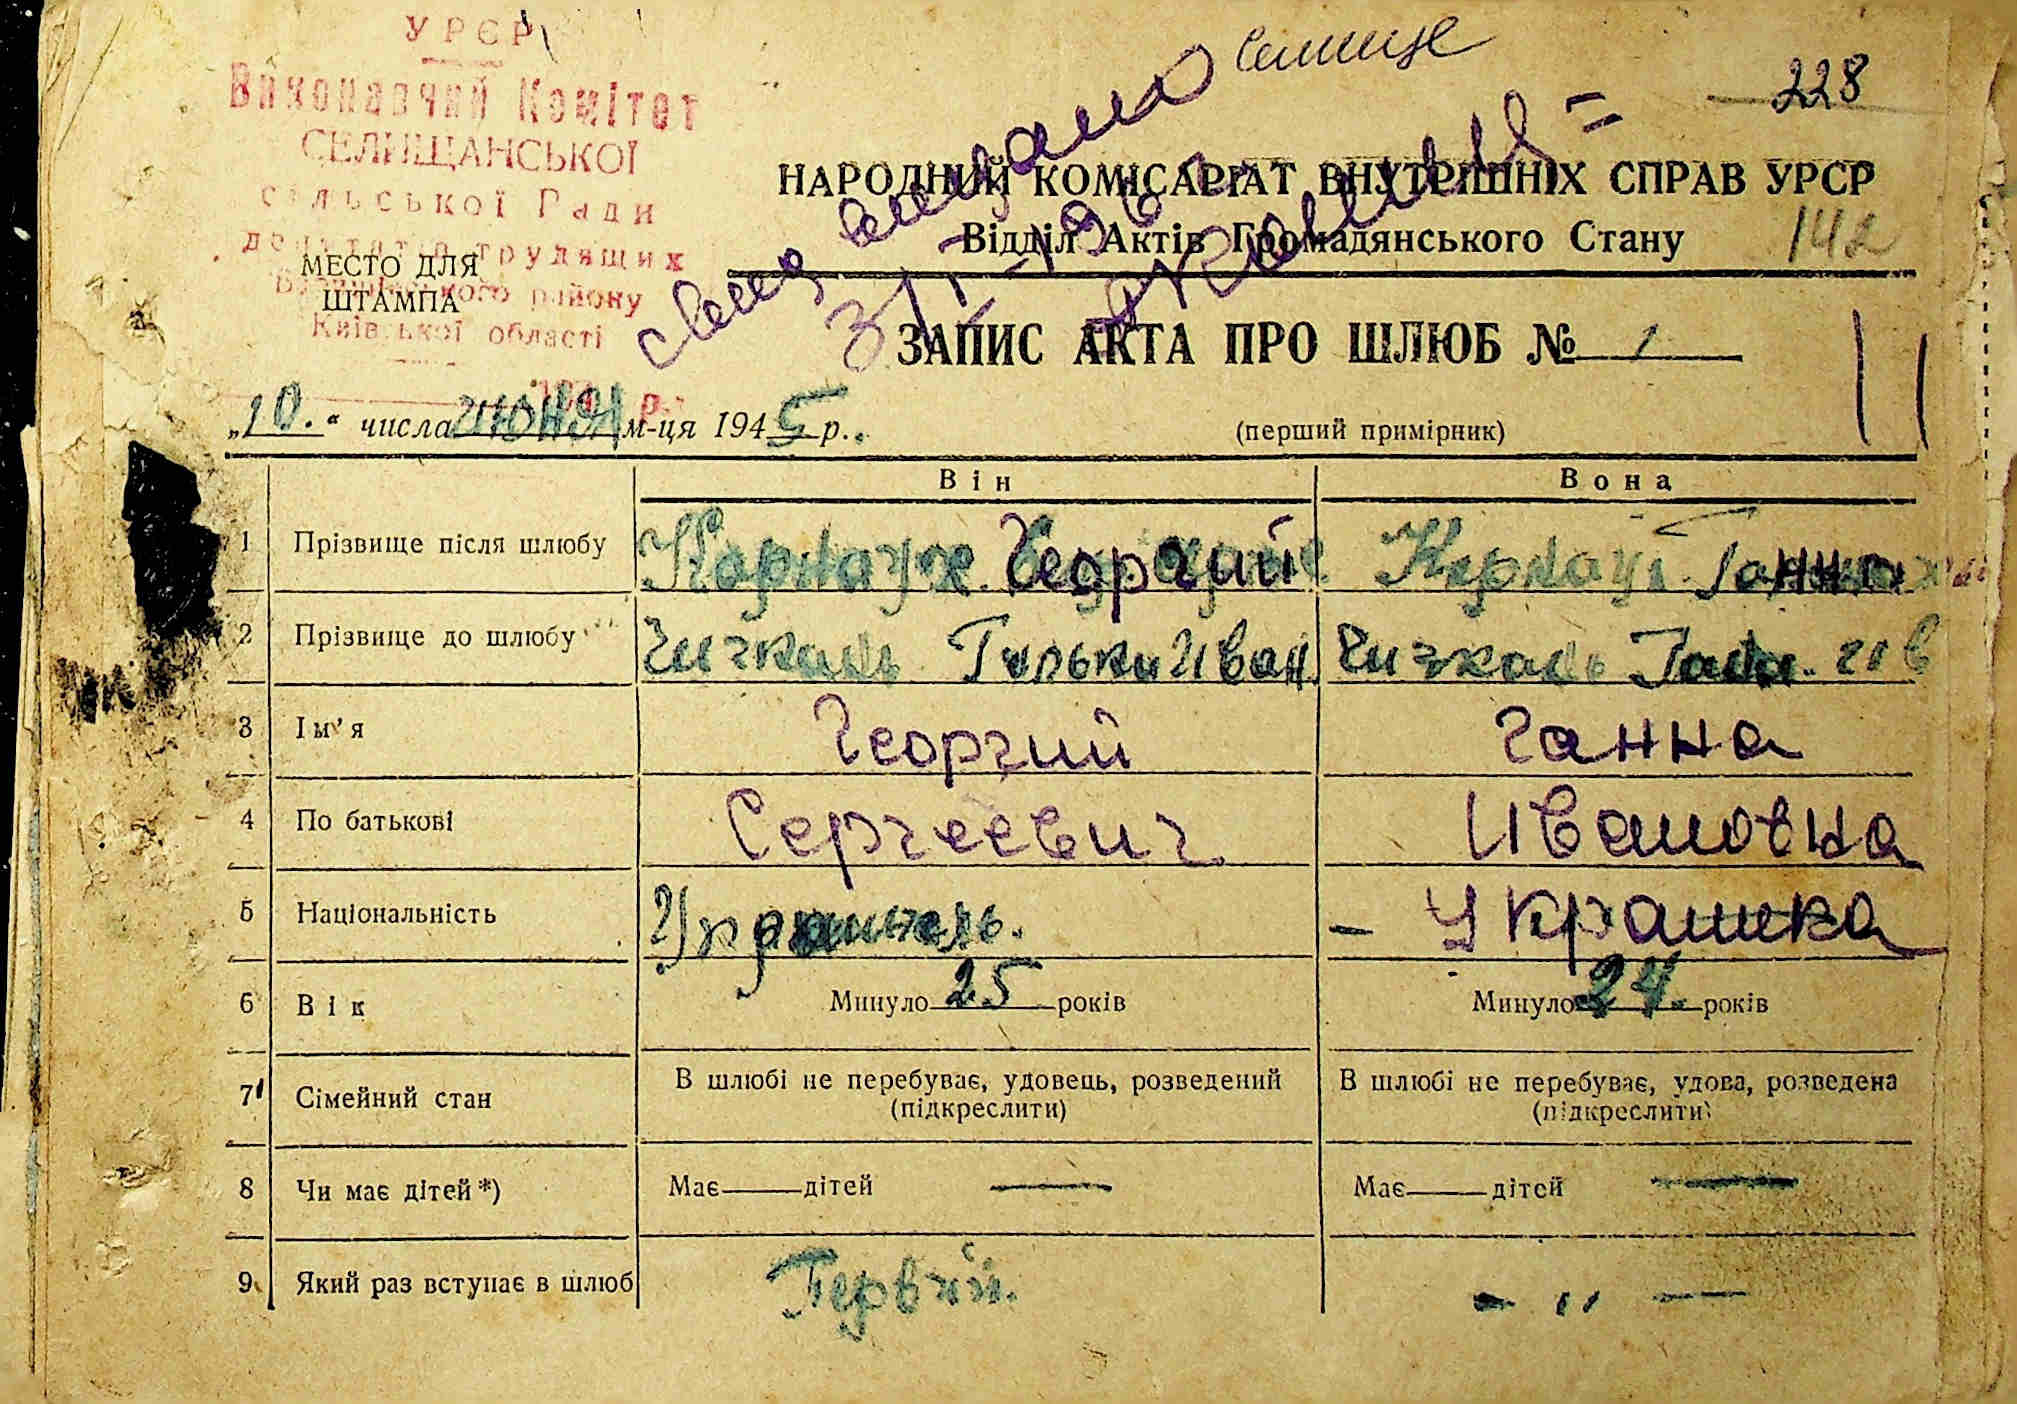 УРСР
Виконавчий Комітет
СЕЛИЩАНСЬКОЇ
сільської Ради
депутатів трудящих
району
Київської області
МЕСТО ДЛЯ
ШТАМПА
Селище
228
142
НАРОДНИЙ КОМІСАРІАТ ВНУТРІШНІХ СПРАВ УРСР
Відділ Актів Громадянського Стану
ЗАПИС АКТА ПРО ШЛЮБ № 1
„10.“ числа июня м-ця 1945 р.
(перший примірник)
Він Вона
1 Прізвище після шлюбу Корнаух Георгий Корнаух Ганна
2 Прізвище до шлюбу Чичкань Иван Чичкань
3 Ім’я Георгий Ганна
4 По батькові Сергеевич Ивановна
5 Національність — Украинка
6 Вік Минуло 25 років Минуло 24 років
7 Сімейний стан В шлюбі не перебуває, удовець, розведений (підкреслити) В шлюбі не перебуває, удова, розведена (підкреслити)
8 Чи має дітей*) Має — дітей — Має — дітей —
9 Який раз вступає в шлюб Первий. – „ —